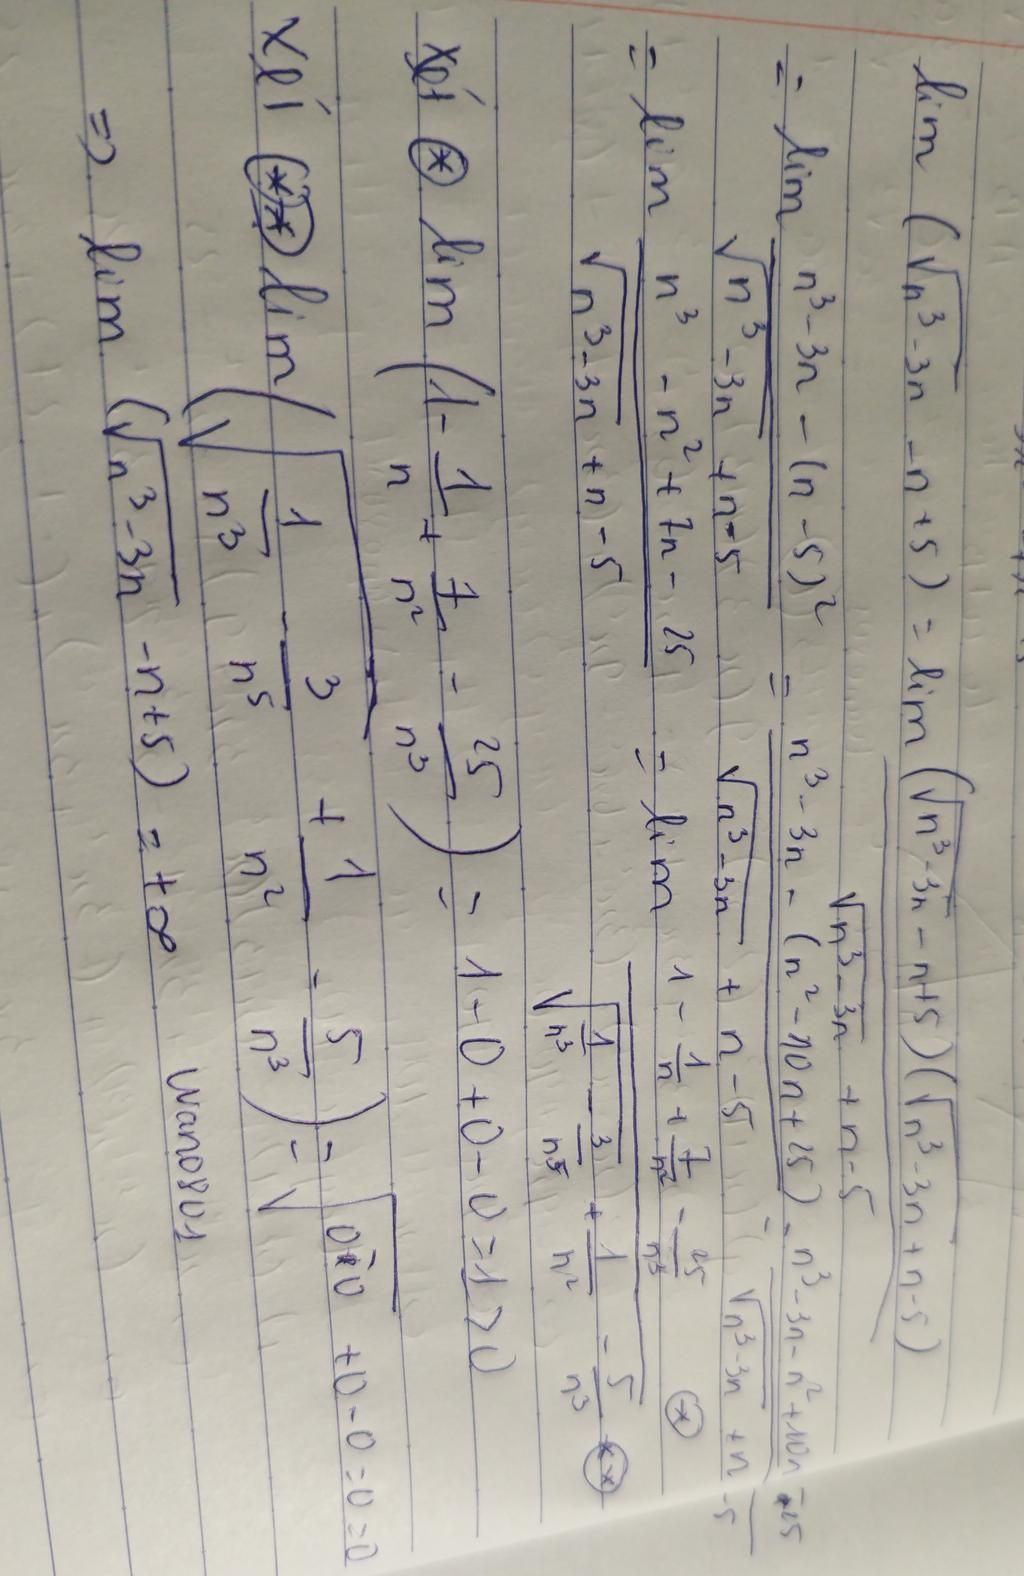 lim (√n³-3n - n + 5) = lim (√n³-3n - n+5)(√n³-3n + n-5)
√n³-3n + n-5
= lim n³-3n - (n-5)² = n³-3n - (n²-10n+25) = n³-3n-n²+10n-25
√n³-3n + n-5 √n³-3n + n-5 √n³-3n + n-5
= lim n³ - n² + 7n - 25 = lim 1 - 1/n + 7/n² - 25/n³ (*)
√n³-3n + n-5 √1/n³ - 3/n⁵ + 1/n² - 5/n³ (**)
Xét (*) lim (1 - 1/n + 7/n² - 25/n³) = 1-0+0-0=1>0
Xét (**) lim (√1/n³ - 3/n⁵ + 1/n² - 5/n³) = √0-0 +0-0=0=0
=> lim (√n³-3n -n+5) = +∞